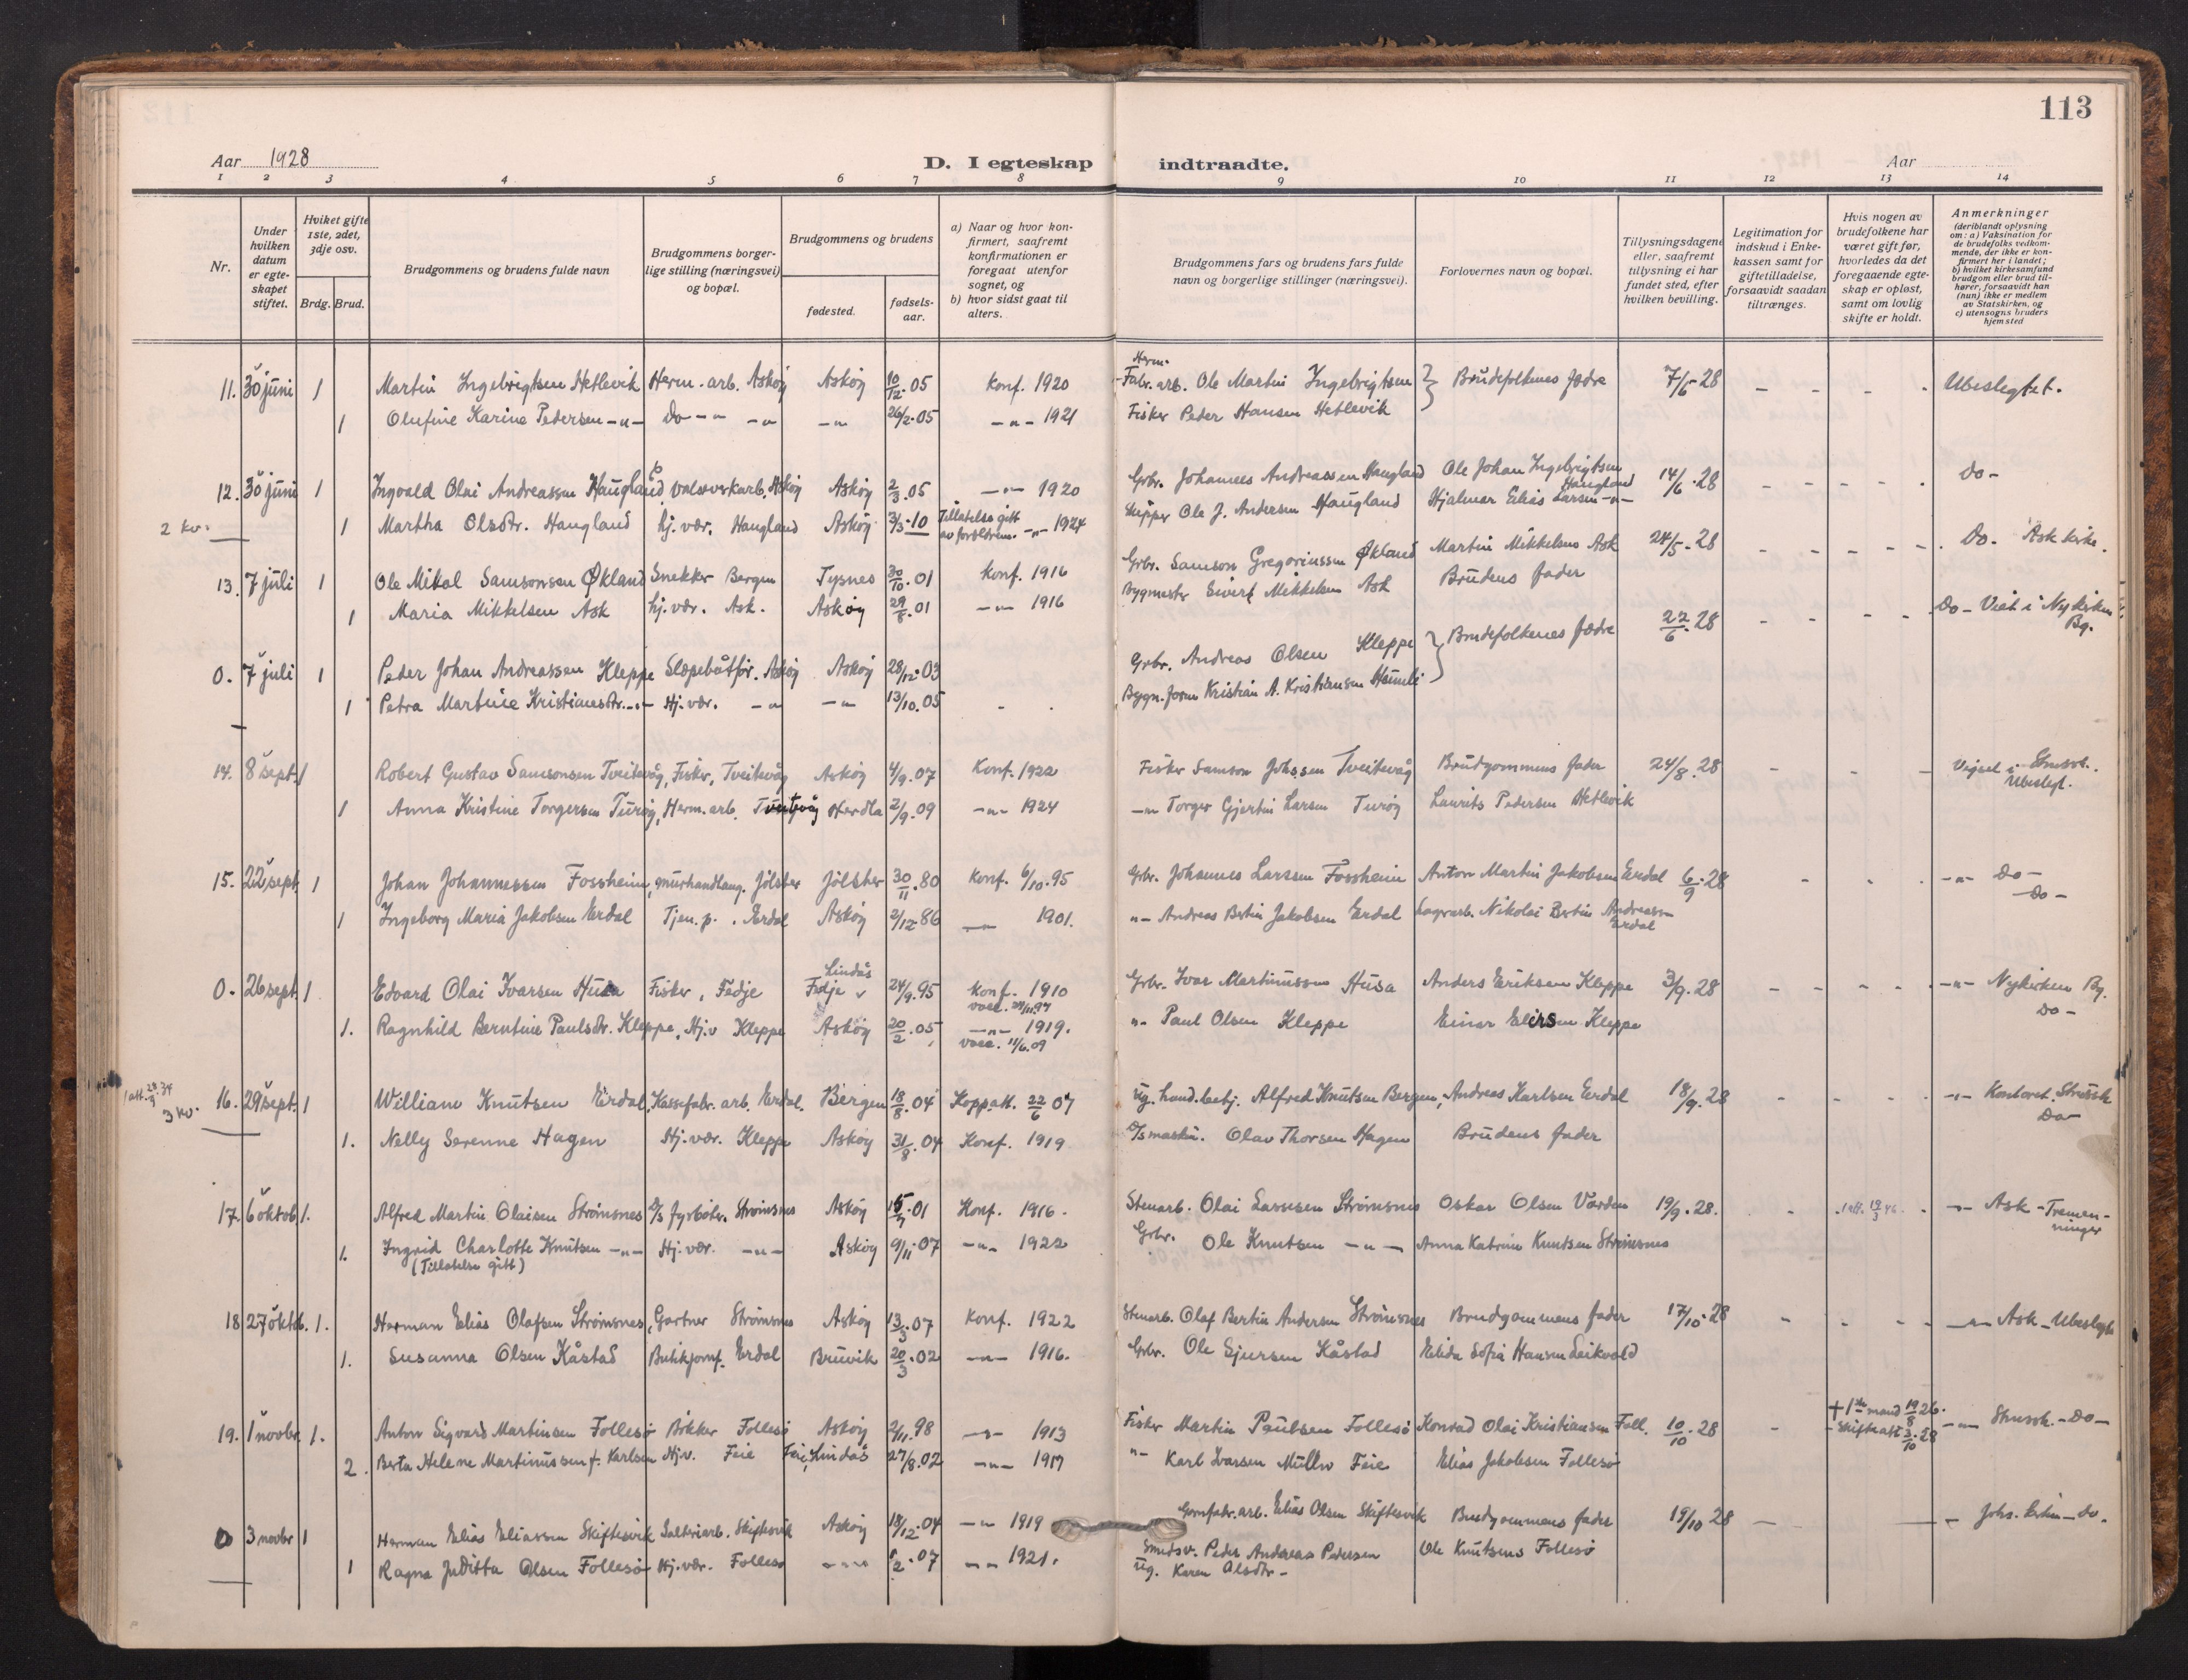 113
Aar 1928
D. I egteskap indtraadte.
Aar
1 2 3 4 5 6 7 8 9 10 11 12 13 14
Nr.
Under hvilken datum er egte-skapet stiftet.
Hviket gifte 1ste, 2det, 3dje osv.
Brdg. Brud.
Brudgommens og brudens fulde navn
Brudgommens borger-lige stilling (næringsvei) og bopæl.
Brudgommens og brudens
fødested.
fødsels-aar.
a) Naar og hvor kon-firmert, saafremt konfirmationen er foregaat utenfor sognet, og
b) hvor sidst gaat til alters.
Brudgommens fars og brudens fars fulde navn og borgerlige stillinger (næringsvei).
Forlovernes navn og bopæl.
Tillysningsdagene eller, saafremt tillysning ei har fundet sted, efter hvilken bevilling.
Legitimation for indskud i Enke-kassen samt for giftetilladelse, forsaavidt saadan tiltrænges.
Hvis nogen av brudefolkene har været gift før, hvorledes da det foregaaende egte-skap er opløst, samt om lovlig skifte er holdt.
Anmerkninger (deriblandt oplysning om: a) Vaksination for de brudefolks vedkom-mende, der ikke er kon-firmert her i landet; b) hvilket kirkesamfund brudgom eller brud til-hører, forsaavidt han (hun) ikke er medlem av Statskirken, og c) utensogns bruders hjemsted
11. 30 juni 1 Martin Ingebrigtsen Hetlevik Herm. arb. Askøy Askøy 10/12.05 Konf. 1920 Herm. Fabr. arb. Ole Martin Ingebrigtsen } Brudefolkenes fædre 7/6.28 - - - . Ubeslegtet.
1 Olufine Karine Pedersen -"- Do -"- -"- -"- 26/2.05 -"- 1921 Fisker Peder Hansen Hetlevik
12. 30 juni 1 Ingvald Olai Andreassen Haugland Askøy Askøy 2/3.05 -"- 1920 Grbr. Johannes Andreassen Haugland Ole Johan Ingebrigtsen Haugland 14/6.28 - - - - . Do-
2 kv. 1 Martha Olsdtr. Haugland hj. vær. Haugland Askøy 3/3.10 Tillatelse gitt av forældrene. -"- 1924 Skipper Ole J. Andersen Haugland Hjalmar Elias Larsen -"-
13. 7 juli 1 Ole Mikal Samsonsen Økland Snekker Bergen Tysnes 30/10.01 Konf. 1916 Grbr. Samson Gregoriussen Økland Martin Mikkelsen Ask 24/5.28 - - - - - . Do. Ask kirke.
1 Maria Mikkelsen Ask hj. vær. Ask. Askøy 29/8.01 -"- 1916 Bygmester Sivert Mikkelsen Ask Brudens fader
0. 7 juli 1 Peder Johan Andreassen Kleppe Slæpebåtfør. Askøy Askøy 28/12.03 Grbr. Andreas Olsen Kleppe } Brudefolkenes fædre 22/6.28 - - - - Do - Viet i Nykirken Bg.
1 Petra Martine Kristiansdtr. -"- Hj. vær. -"- -"- 13/10.05 - . Bygn. form Kristian A. Kristiansen Heimli
14. 8 sept. 1 Robert Gustav Samsonsen Tveitevåg, Fisker, Tveitevåg Askøy 4/9.07 Konf. 1922 Fisker Samson Johssen Tveitevåg Brudgommens fader 24/8.28 - - - Vigsel i Strussh. Ubeslegt.
1 Anna Kristine Torgersen Turøy, Herm. arb. Tveitevåg Herdla 2/9.09 -"- 1924 -"- Torger Gjertin Larsen Turøy Laurits Pedersen Hetlevik
15. 22 sept. 1 Johan Johannessen Fossheim, murhandlang. Jölster Jölster 30/11.80 Konf. 6/10.95 Grbr. Johannes Larssen Fossheim Anton Martin Jakobsen Erdal 6/9.28 - . . -"- Do - Do -
1 Ingeborg Maria Jakobsen Erdal Tjen. p. . Erdal Askøy 2/12.86 -"- 1901. "- Andreas Bertin Jakobsen Erdal Lagerarb. Nikolai Bertin Andreassen Erdal
0. 26 sept. 1 Edvard Olai Ivarsen Husa Fisker, Fedje Lindås Fedje 24/9.95 Konf. 1910 Grbr. Ivar Martinussen Husa Anders Eriksen Kleppe 3/9.28 - - - - - -"- Nykirken Bg. Do -
1. Ragnhild Berntine Paulsdtr. Kleppe, Hj.v Kleppe Askøy 20/2.05 -"- 1919. vacc. 11/6.09 "- Paul Olsen Kleppe Einar Kleppe
3 kv. 16. 29 sept. 1 William Knutsen Erdal, Kassefabr. arb. Erdal. Bergen 18/8.04 Koppatt. 22/6 07 Ug. hand. betj. Alfred Knutsen Bergen, Andreas Karlsen Erdal 18/9.28 - - - - -"- Kontoret. Strussh Do-
1. Nelly Serenne Hagen Hj. vær. Kleppe Askøy 31/8.04 Konf. 1919 D/s maskin. Olav Thorsen Hagen Brudens fader
17. 6 oktob. 1. Alfred Martin Olaisen Strømsnes D/s fyrbøter. Strømsnes Askøy 15/7.01 Konf. 1916. Stenarb. Olai Larssen Strømsnes Oskar Olsen Varden 19/9.28. . .1att. 19/3 46. . -"- Ask - Tremenninger
1. Ingrid Charlotte Knutsen -"- Hj. vær. -"- Askøy 9/11.07 -"- 1922 Grbr. Ole Knutsen -"- Anna Katrine Knutsen Strømsnes
(Tillatelse gitt)
18 27 oktob. 1. Herman Elias Olafsen Strømsnes, Gartner Strømsnes Askøy 13/3.07 Konf. 1922 Stenarb. Olaf Bertin Andersen Strømsnes Brudgommens fader 17/10.28 - - - - -"- Ask - Ubeslegt
1. Susanna Olsen Kåstad Butikjomf. Erdal Bruvik 20/3.02 -"- 1916. Grbr. Ole Sjursen Kåstad Elida Sofia Hansen Leikvold
19. 1 novbr. 1. Anton Sigvard Martinsen Follesø Bøkker Follesø Askøy 2/11.98 -"- 1913 Fisker Martin Paulsen Follesø Konrad Olai Kristiansen Foll. 10/10.28 - † 1ste mand 19/8 26. - Skifteatt 3/10.28 -"- Strussh. - Do -
2. Berta Helene Martinussen f. Karlsen Hj.v. Feie Feie, Lindås 27/8.02 -"- 1917 "- Karl Ivarsen Feie Elias Jakobsen Follesø
0 3 novbr 1 Herman Elias Eliassen Skiftesvik Salteriarb. Skiftesvik Askøy 18/12.04 -"- 1919 Elias Olsen Skiftesvik Brudgommens fader 19/10 28 - - - Johs. kirken - Do.
1 Ragna Juditta Olsen Follesø Hj. vær. Follesø -"- 1/2.07 -"- 1921. Smedsv. Peder Andreas Pedersen Ole Knutsens Follesø
Ug. Karen Olsdtr -